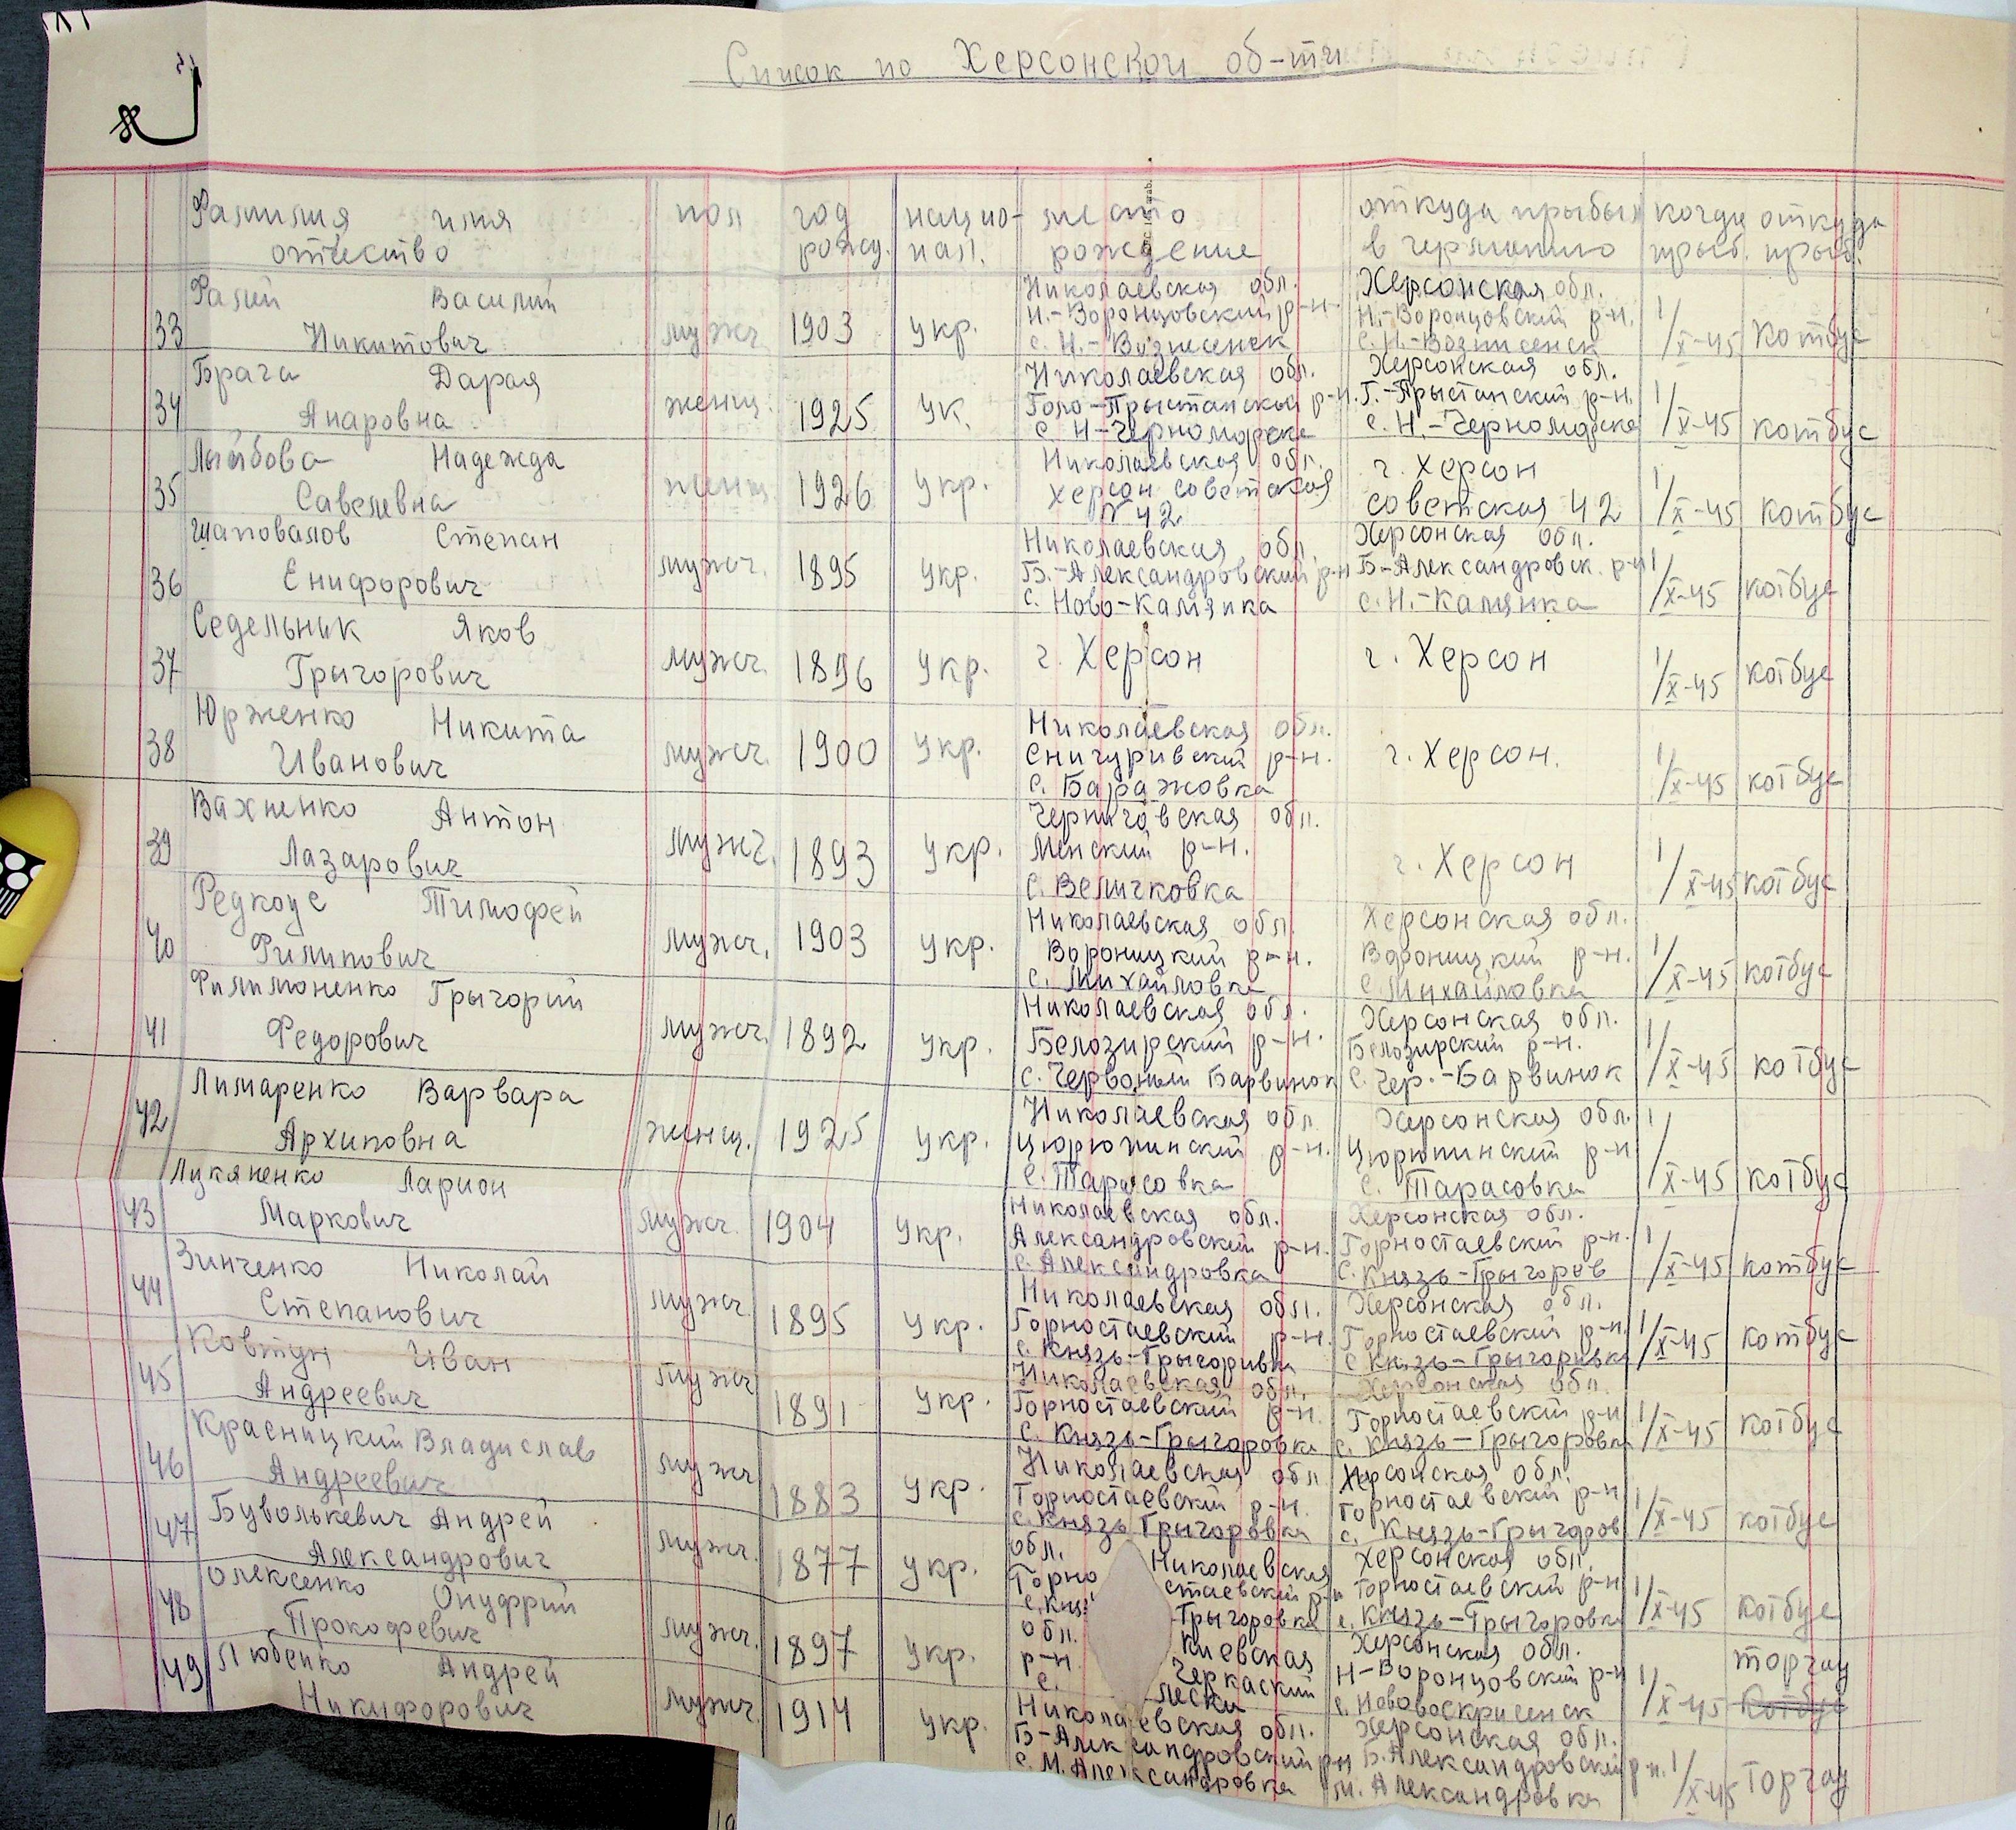 Список по Херсонской об-ти
Фамилия имя отчество пол год рожд. нацио-нал. место рождение откуда прибыл в германию когда приб. откуда приб.
33 Фалий Василий Никитович мужч. 1903 укр. Николаевская обл. Н.-Воронцовский р-н. с. Н.-Вознесенск Херсонская обл. Н.-Воронцовский р-н. с. Н.-Вознисенск 1/X-45 Котбус
34 Брага Дарая Анаровна женщ. 1925 ук. Николаевская обл. Голо-Прыстанский р-н. с. Н-Черноморске Херсонская обл. Г.-Прыстанский р-н. с. Н.-Черноморске 1/X-45 котбус
35 Надежда Савелевна женщ. 1926 укр. Николаевская обл. Херсон советская № 42 г. Херсон советская 42 1/X-45 котбус
36 Шаповалов Степан Енифорович мужч. 1895 укр. Николаевская обл. Б.-Александровский р-н с. Ново-Камянка Херсонская обл. Б-Александровск. р-н с. Н.-Камянка 1/X-45 котбус
37 Седельник Яков Грыгорович мужч. 1896 укр. г. Херсон г. Херсон 1/X-45 котбус
38 Юрженко Никита Иванович мужч. 1900 укр. Николаевская обл. Снигуривский р-н. с. Баражовка г. Херсон. 1/X-45 котбус
39 Вахненко Антон Лазарович мужч. 1893 укр. Черниговская обл. Менский р-н. с. Величковка г. Херсон 1/X-45 котбус
40 Редкоус Тимофей Филипович мужч. 1903 укр. Николаевская обл. Вороницкий р-н. с. Михайловка Херсонская обл. Вороницкий р-н. с. Михайловка 1/X-45 котбус
41 Филимоненко Грыгорий Федорович мужч. 1892 укр. Николаевская обл. Белозирский р-н. с. Червоный Барвинок Херсонская обл. Белозирский р-н. с. Чер.-Барвинок 1/X-45 котбус
42 Лимаренко Варвара Архиповна женщ. 1925 укр. Николаевская обл. Цюрюпинский р-н. с. Тарасовка Херсонская обл. Цюрюпинский р-н с. Тарасовка 1/X-45 котбус
43 Лукяненко Ларион Маркович мужч. 1904 укр. Николаевская обл. Александровский р-н. с. Александровка Херсонская обл. Горностаевский р-н. с. Князь-Грыгоров 1/X-45 котбус
44 Зинченко Николай Степанович мужч. 1895 укр. Николаевская обл. Горностаевский р-н. с. Князь-Грыгоривка Херсонская обл. Горностаевский р-н. с Князь-Грыгоривка 1/X-45 котбус
45 Ковтун Иван Андреевич мужч 1891 укр. Николаевская обл. Горностаевский р-н. с. Князь-Грыгоровка Херсонская обл. Горностаевский р-н с. Князь-Грыгоровка 1/X-45 котбус
46 Красницкий Владислав Андреевич мужч 1883 укр. Николаевская обл Горностаевский р-н. с. Князь Грыгоровка Херсонская обл. Горностаевский р-н с. Князь-Грыгоров 1/X-45 котбус
47 Бувалькевич Андрей Александрович мужч. 1877 укр. Николаевская обл. Горностаевский р-н с. Княз-Грыгоровка Херсонская обл. Горностаевский р-н с. Князь-Грыгоровка 1/X-45 котбус
48 Олексенко Онуфрий Прокофевич мужч. 1897 укр. Киевская обл. Черкаский р-н. с. Леськи Херсонская обл. Н-Воронцовский р-н с. Нововоскрисенск 1/X-45 торгау Котбус
49 Любенко Андрей Никифорович мужч. 1914 укр. Николаевская обл. Б-Александровский р-н с. М. Александровка Херсонская обл. Б. Александровский р-н. М. Александровка 1/X-45 Торгау